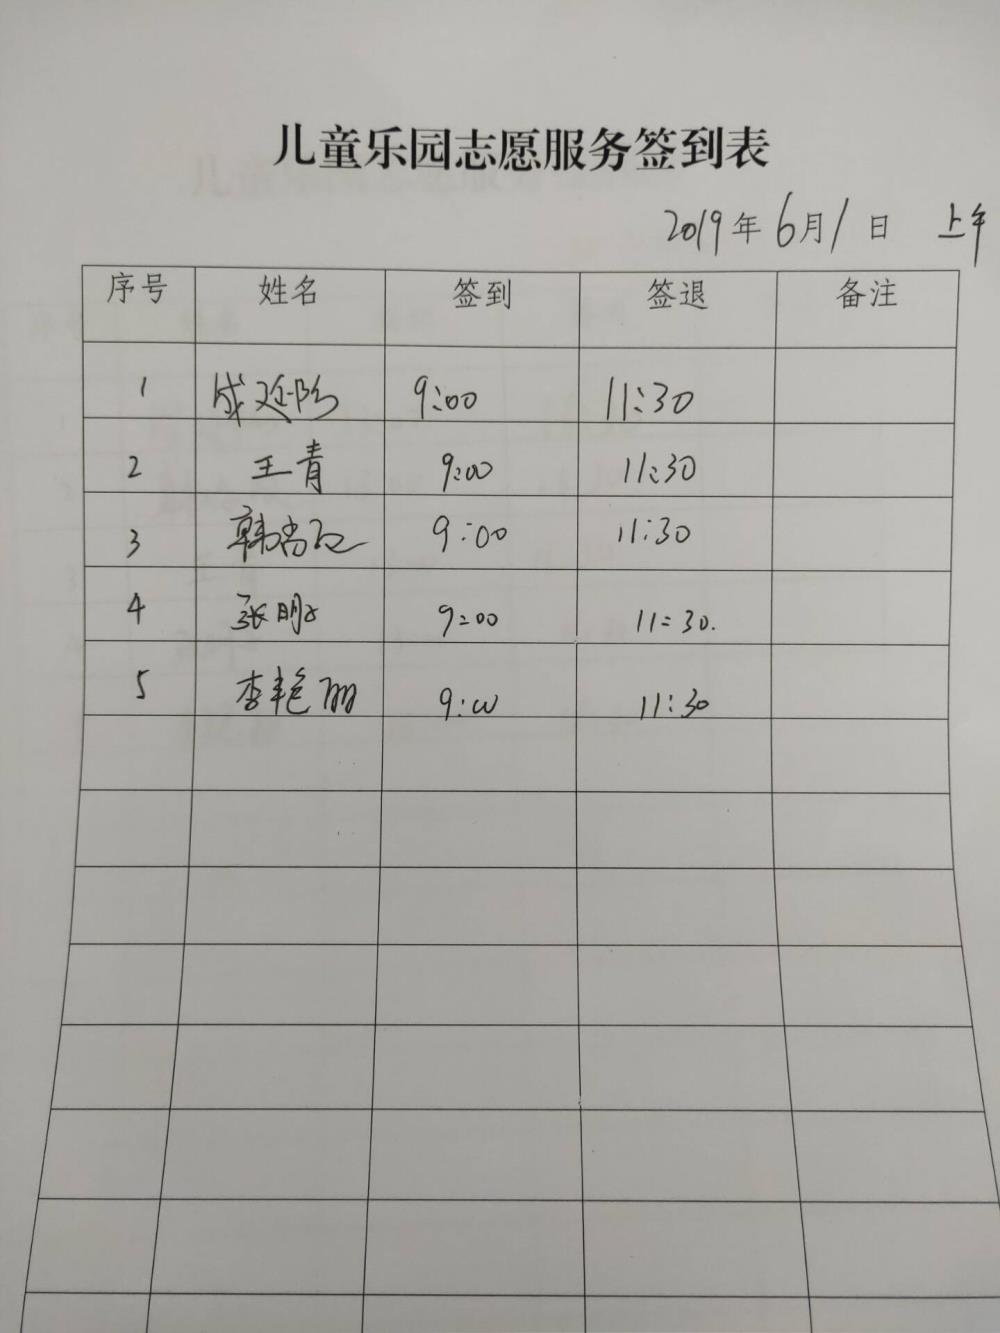 儿童乐园志愿服务签到表
2019年6月1日 上午
序号 姓名 签到 签退 备注
1 成廷 9:00 11:30
2 王青 9:00 11:30
3 韩尚 9:00 11:30
4 张明 9:00 11:30.
5 李艳丽 9:00 11:30